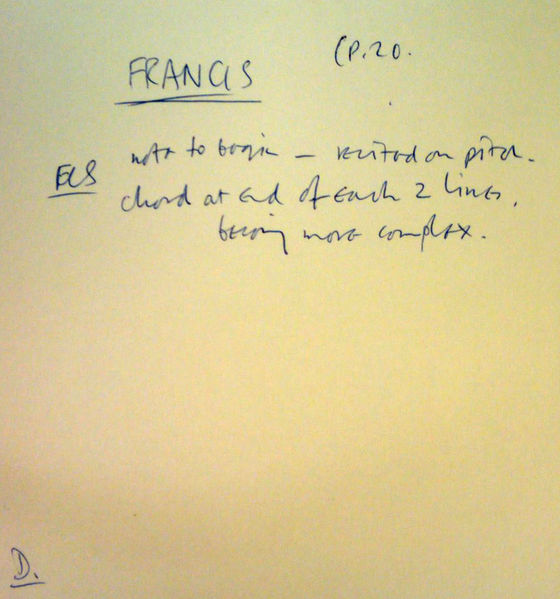 FRANCIS (P.20.
ECS note to begin – recited on pitch.
chord at end of each 2 lines,
becoming more complex.
D.